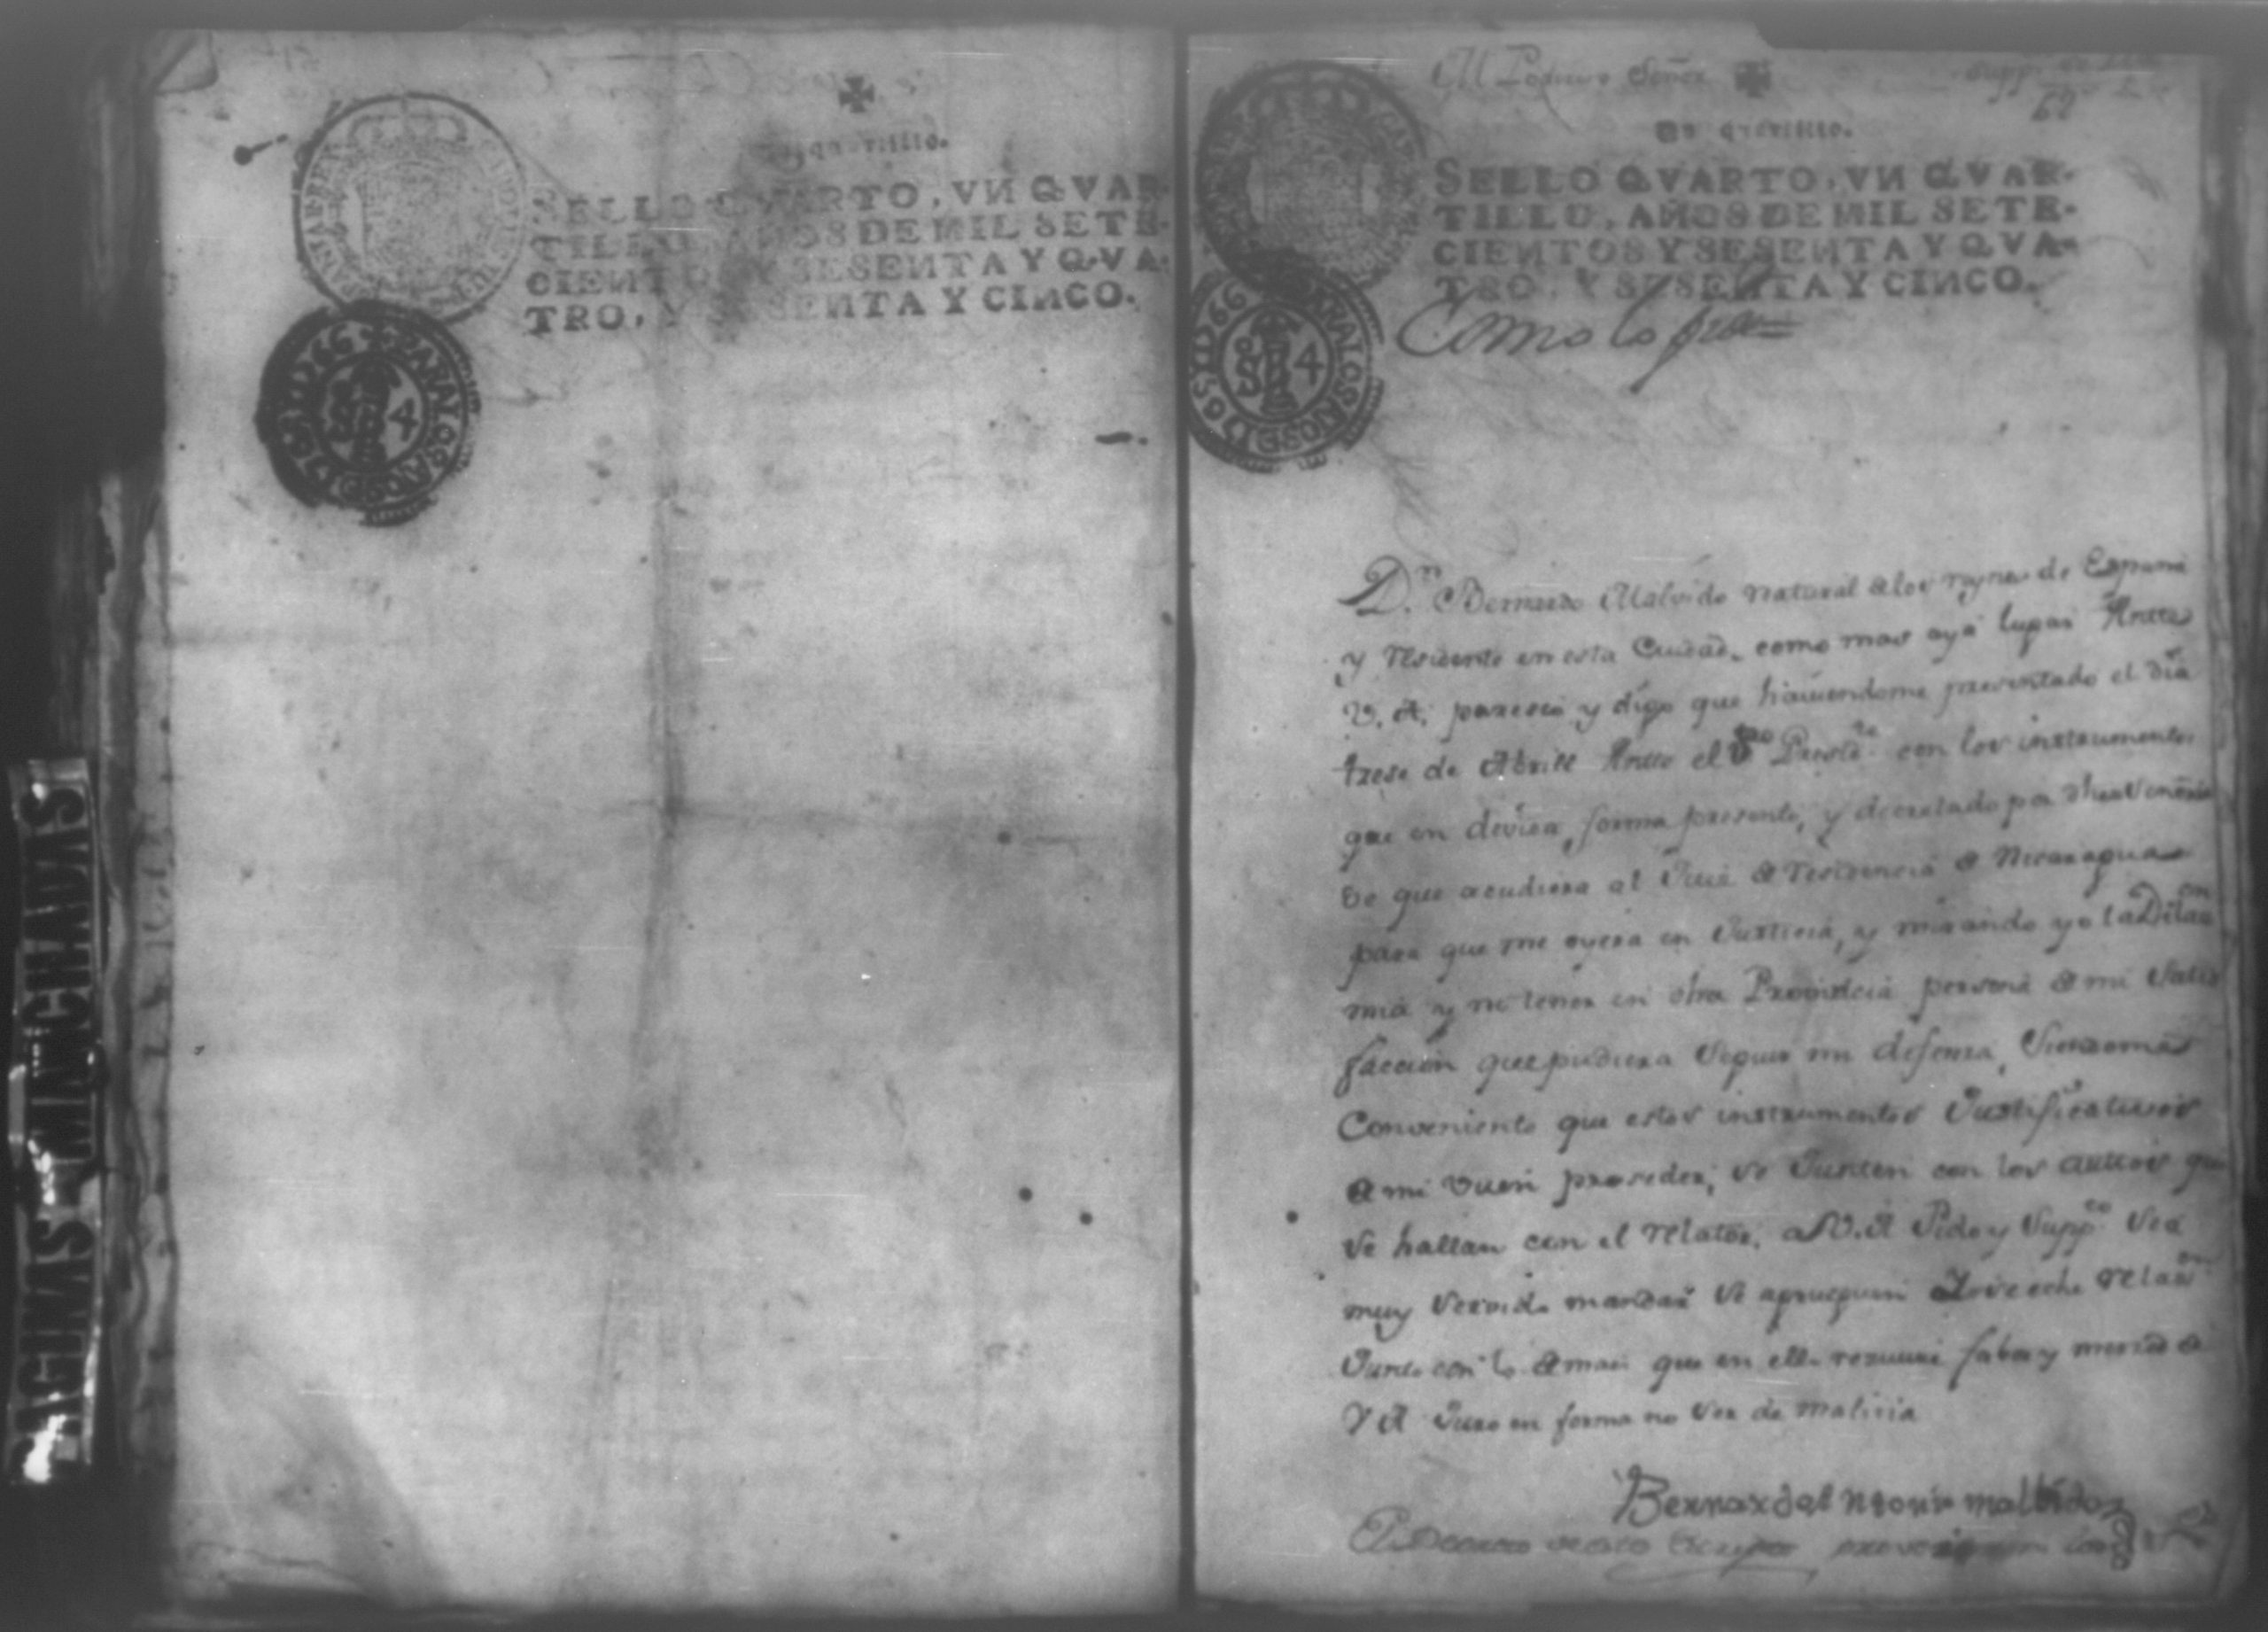 qu rtillo.
SELLO QVARTO, VN QVAR-
TILLO, AÑOS DE MIL SETE-
CIENTOS Y SESENTA Y QVA-
TRO, Y SESENTA Y CINCO.
PARA LOS AÑOS DE 1765 Y 1766
4
M Poderoso Señor
62
Un quartillo.
SELLO QVARTO, VN QVAR-
TILLO, AÑOS DE MIL SETE-
CIENTOS Y SESENTA Y QVA-
TRO, Y SESENTA Y CINCO.
PARA LOS AÑOS DE 1765 Y 1766
4
Como lo pide
Dn. Bernardo Malvido natural de los reynos de España
y residente en esta Ciudad, como mas aya lugar Antte
V. A. paresco y digo que haviendome presentado el dia
trese de Abrill Antte el Presidte con los instrumentos
que en devida forma presento, y decretado por
se que acudiera al Jues de residencia de Nicaragua
para que me oyera en Justicia, y mirando yo la Dilacon
mia y no tener en otra Provincia persona de mi satis
faccion que pudiera seguir mi defensa, siendome
Conveniente que estos instrumentos Justificativos
de mi buen proseder, se Junten con los auttos que
se hallan con el relator. a V. A Pido y suppco sea
muy servido mandar se agreguen relaon
Junto con lo demas que en ella resivire fabor y mersed de
V A Juro en forma no ser de malicia
Bernardo Antonio malbido
AGINAS MANCHADAS